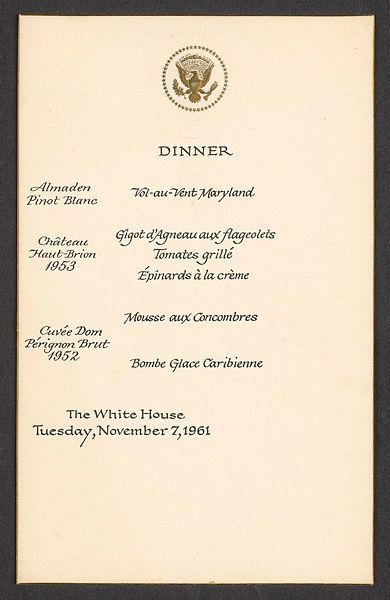 DINNER
Almaden
Pinot Blanc
Vol-au-Vent Maryland
Château
Haut-Brion
1953
Gigot d'Agneau aux flageolets
Tomates grillé
Épinards à la crème
Mousse aux Concombres
Cuvée Dom
Pérignon Brut
1952
Bombe Glace Caribienne
The White House
Tuesday, November 7, 1961